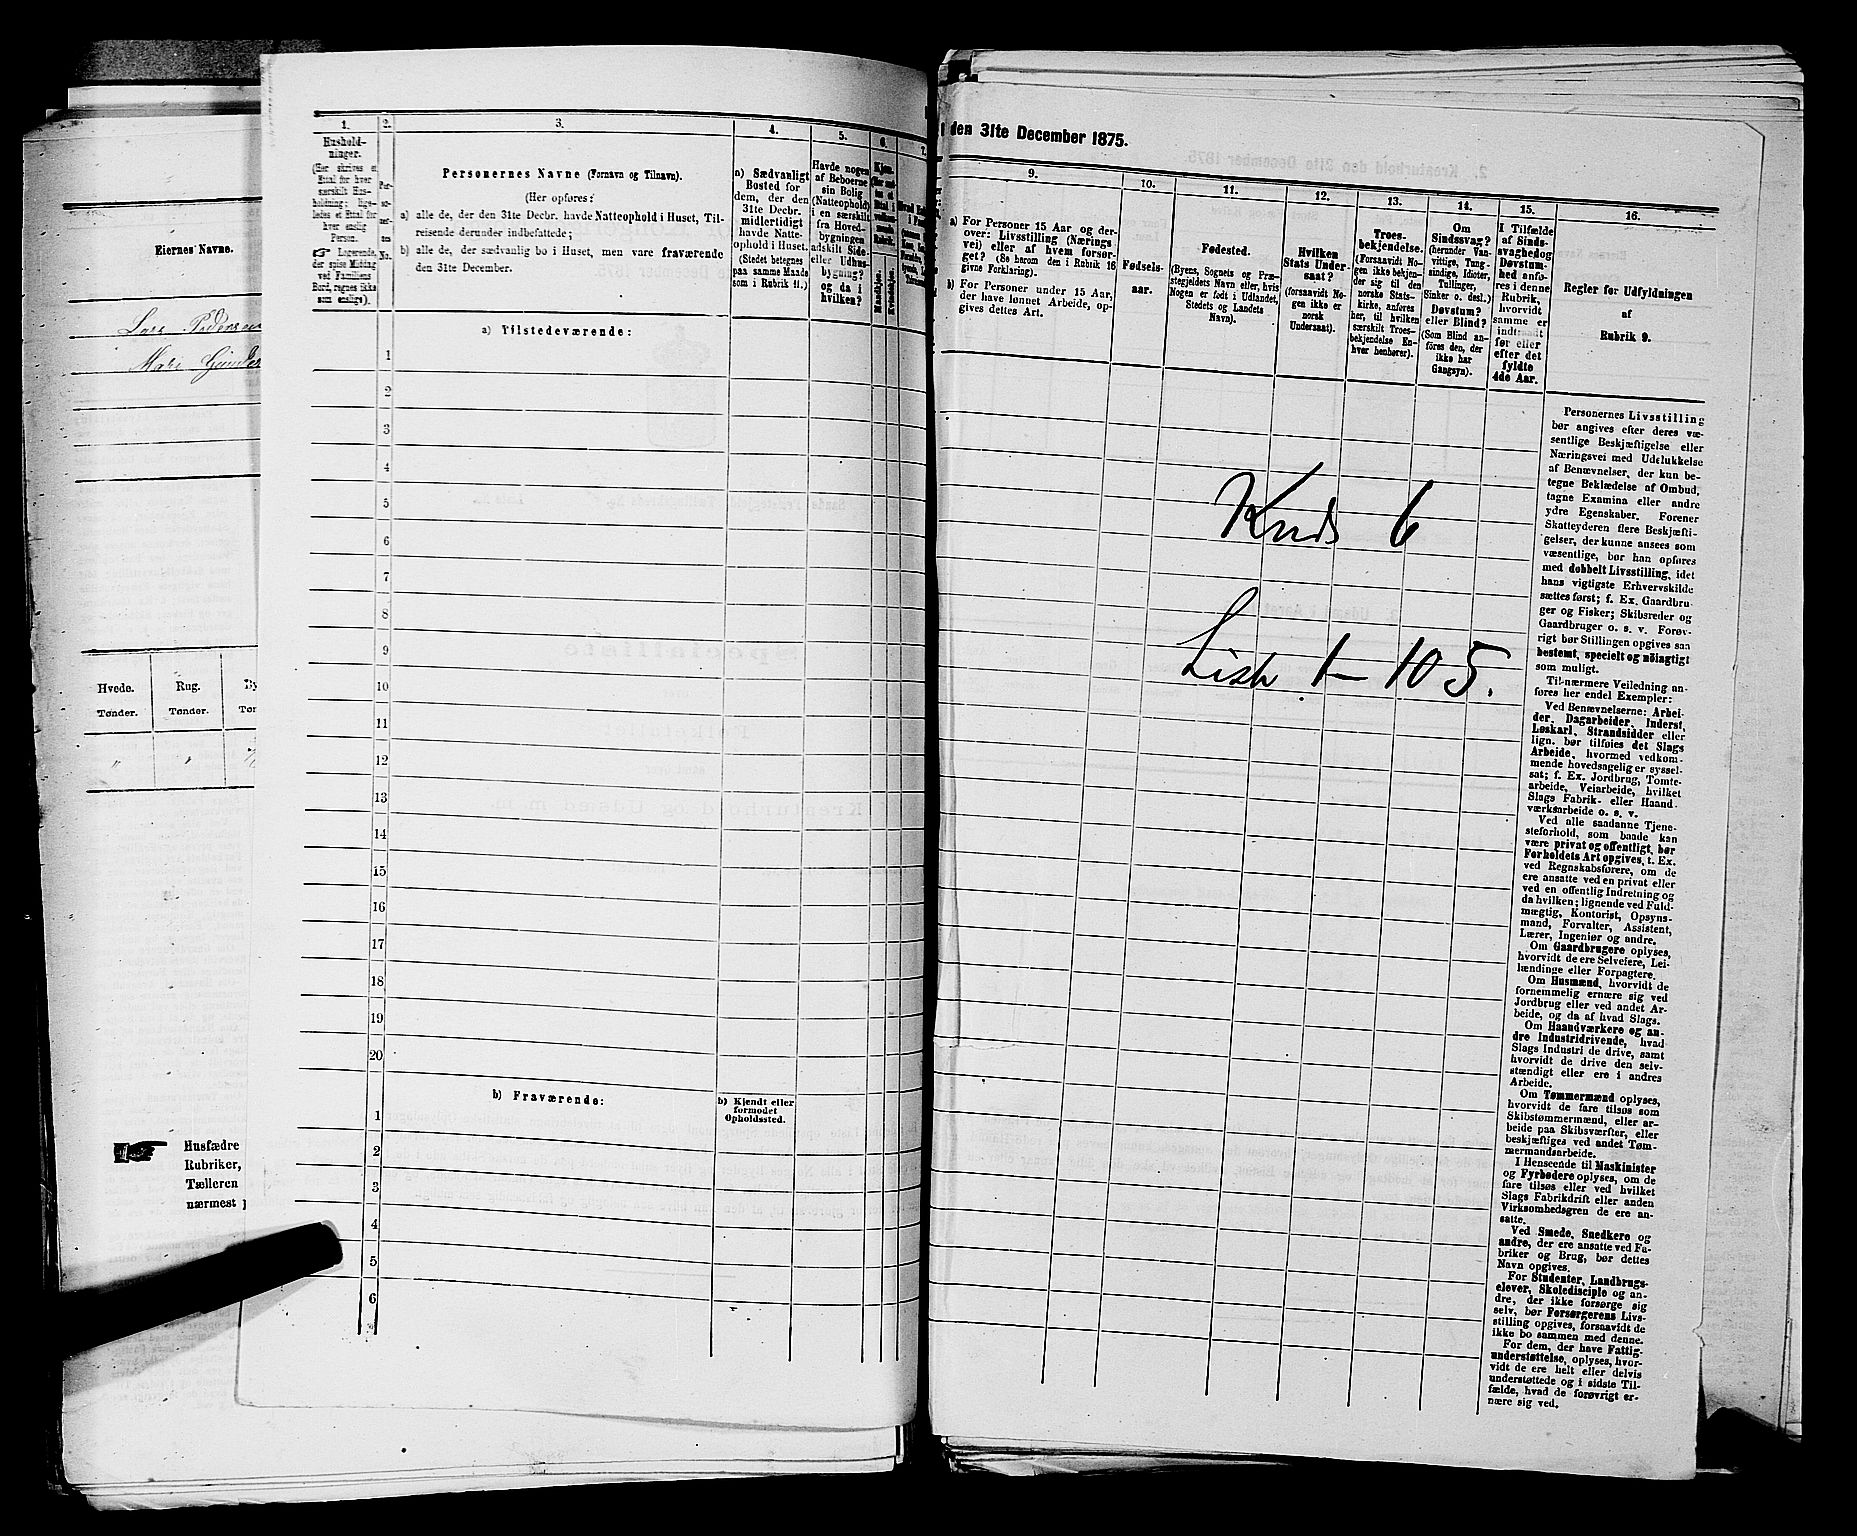 Eiernes Navne.
Lars Pedersen
Hvede. Rug. By
Tønder. Tønder. Tør
" "
Husfædre
Rubriker,
Tælleren
nærmest
1. 2. 3. 4. 5. 6. 7.
Hushold-
ninger.
(Her skrives et
Ettal for hver
særskilt Hus-
holdning; lige-
ledes et Ettal for
hver enslig
Person.
☞ Logerende,
der spise Middag
ved Familiens
Bord, regnes ikke
som enslige).
Per-
so-
ner-
nes
No.
Personernes Navne (Fornavn og Tilnavn).
(Her opføres:
a) alle de, der den 31te Decbr. havde Natteophold i Huset, Til-
reisende derunder indbefattede;
b) alle de, der sædvanlig bo i Huset, men vare fraværende
den 31te December.
a) Sædvanligt
Bosted for
dem, der den
31te Decbr.
midlertidigt
havde Natte-
ophold i Huset.
(Stedet betegnes
paa samme Maade
som i Rubrik 11.)
Havde nogen
af Beboerne
sin Bolig
(Natteophold)
i en særskilt
fra Hoved-
bygningen
adskilt Side-
eller Udhus-
bygning?
og da i
hvilken?
Kjøn.
Rubrik.
Mandkjøn.
Kvindekjøn.
a) Tilstedeværende:
1
2
3
4
5
6
7
8
9
10
11
12
13
14
15
16
17
18
19
20
b) Fraværende:
b) Kjendt eller
formodet
Opholdssted.
1
2
3
4
5
6
den 31te December 1875.
9. 10. 11. 12. 13. 14. 15. 16.
a) For Personer 15 Aar og der-
over: Livsstilling (Nærings
vei) eller af hvem forsør-
get? (Se herom den i Rubrik 16
givne Forklaring).
b) For Personer under 15 Aar,
der have lønnet Arbeide, op-
gives dettes Art.
Fødsels-
aar.
Fødested.
(Byens, Sognets og Præ-
stegjeldets Navn eller, hvis
Nogen er født i Udlandet,
Stedets og Landets
Navn).
Hvilken
Stats Under-
saat?
(forsaavidt No-
gen ikke er
norsk
Undersaat).
Troes-
bekjendelse.
(Forsaavidt No-
gen ikke bekjen-
der sig til den
norske Stats-
kirke, anføres
her, til hvilken
særskilt Troes-
bekjendelse En-
hver henhører).
Om
Sindssvag?
(herunder Van-
vittige, Tung-
sindige, Idioter,
Tullinger,
Sinker o. desl.)
Døvstum?
eller Blind?
(Som Blind an-
føres den, der
ikke har
Gangsyn).
I Tilfælde
af Sinds-
svaghed og
Døvstum-
hed anfø-
res i denne
Rubrik,
hvorvidt
samme er
indtraadt
før eller
efter det
fyldte
4de Aar.
Regler for Udfyldningen
af
Rubrik 9.
Krds 6
List 1 - 105.
Personernes Livsstilling
bør angives efter deres væ-
sentlige Beskjæftigelse eller
Næringsvei med Udelukkelse
af Benævnelser, der kun be-
tegne Beklædelse af Ombud,
tagne Examina eller andre
ydre Egenskaber. Forener
Skatteyderen flere Beskjæfti-
gelser, der kunne ansees som
væsentlige, bør han opføres
med dobbelt Livsstilling, idet
hans vigtigste Erhvervskilde
sættes først; f. Ex. Gaardbru-
ger og Fisker; Skibsreder og
Gaardbruger o. s. v. Forøv-
rigt bør Stillingen opgives saa
bestemt, specielt og nøiagtigt
som muligt.
Til nærmere Veiledning an-
føres her endel Exempler:
Ved Benævnelserne: Arbei-
der, Dagarbeider, Inderst,
Løskarl, Strandsidder eller
lign. bør tilføies det Slags
Arbeide, hvormed vedkom-
mende hovedsagelig er syssel-
sat; f. Ex. Jordbrug, Tomte-
arbeide, Veiarbeide, hvilket
Slags Fabrik- eller Haand-
værksarbeide o. s. v.
Ved alle saadanne Tjene-
steforhold, som baade kan
være privat og offentligt, bør
Forholdets Art opgives, t. Ex.
ved Regnskabsførere, om de
ere ansatte ved en privat eller
ved en offentlig Indretning og
da hvilken; lignende ved Fuld-
mægtig, Kontorist, Opsyns-
mand, Forvalter, Assistent,
Lærer, Ingeniør og andre.
Om Gaardbrugere oplyses,
hvorvidt de ere Selveiere, Lei-
lændinge eller Forpagtere.
Om Husmænd, hvorvidt de
fornemmelig ernære sig ved
Jordbrug eller ved andet Ar-
beide, og da af hvad Slags.
Om Haandværkere og an-
dre Industridrivende, hvad
Slags Industri de drive, samt
hvorvidt de drive den selv-
stændigt eller ere i andres
Arbeide.
Om Tømmermænd oplyses,
hvorvidt de fare tilsøs som
Skibstømmermænd, eller ar-
beide paa Skibsværfter, eller
beskjæftiges ved andet Tøm-
mermandsarbeide.
I Henseende til Maskinister
og Fyrbødere oplyses, om de
fare tilsøs eller ved hvilket
Slags Fabrikdrift eller anden
Virksomhedsgren de ere an-
satte.
Ved Smede, Snedkere og
andre, der ere ansatte ved Fa-
briker og Brug, bør dettes
Navn opgives.
For Studenter, Landbrugs-
elever, Skoledisciple og an-
dre, der ikke forsørge sig
selv, bør Forsørgerens Livs-
stilling opgives, forsaavidt de
ikke bo sammen med denne.
For dem, der have Fattig-
understøttelse, oplyses, hvor-
vidt de ere helt eller delvis
understøttede og i sidste Til-
fælde, hvad de forøvrigt er-
nære sig ved.